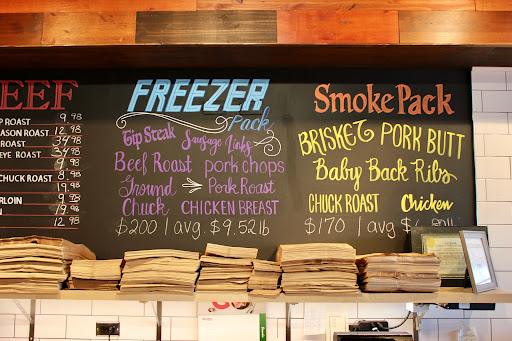 EEF
P ROAST 9.98
ASON ROAST 12.98
ROAST 34.98
EYE ROAST 34.98
9.98
CHUCK ROAST 8.98
19.98
RLOIN 9.98
N 19.98
12.98
FREEZER
Pack
Tip Steak Sausage Links
Beef Roast pork chops
Ground Pork Roast
Chuck CHICKEN BREAST
$200 | avg. $9.52lb
Smoke Pack
BRISKET PORK BUTT
Baby Back Ribs
CHUCK ROAST Chicken
$170 | avg $